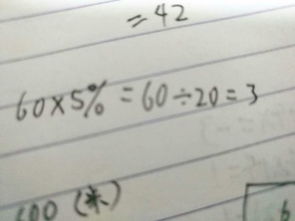 =42
60×5%=60÷20=3
600(米)